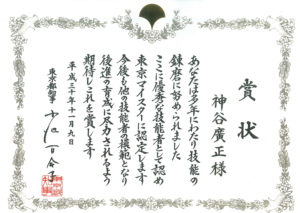 賞状
神谷廣正様
あなたは多年にわたり技能の
錬磨に努められました
ここに優秀な技能者と認め
東京マイスターに認定します
今後も他の技能者の模範となり
後進の育成に尽力されるよう
期待しこれを賞します
平成三十年十一月九日
東京都知事 小池百合子